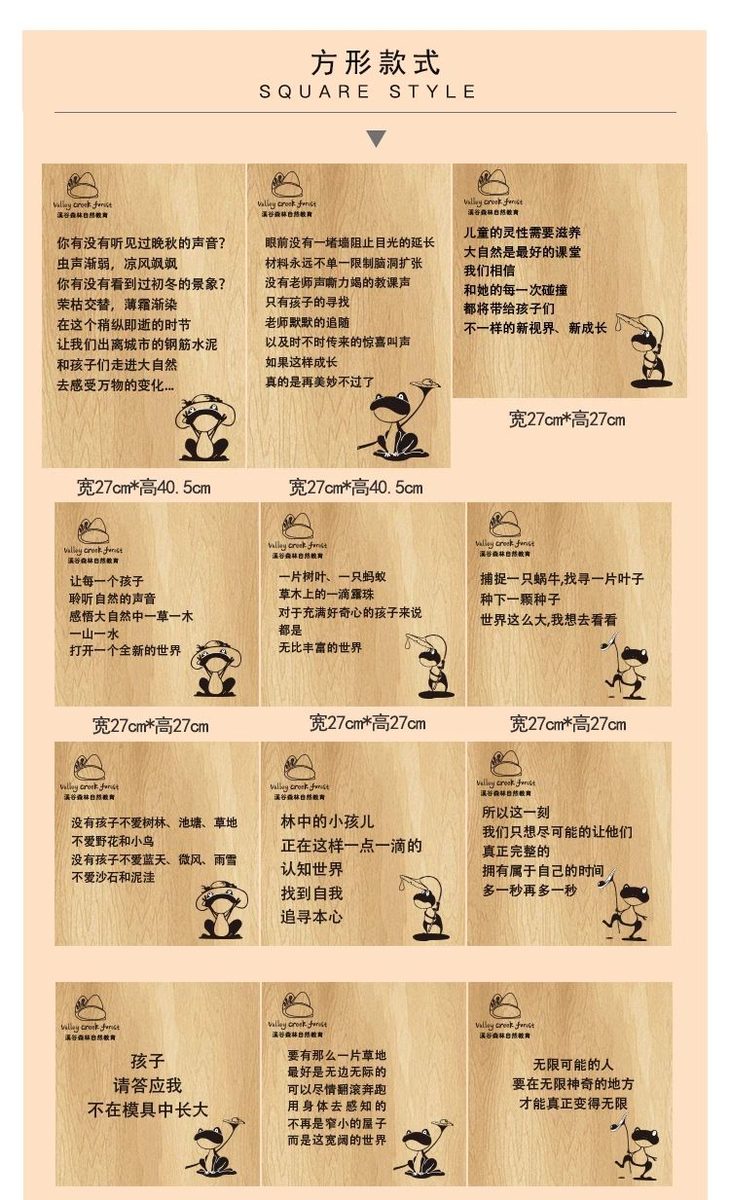 方形款式
SQUARE STYLE
Valley Creek forist
溪谷森林自然教育
你有没有听见过晚秋的声音?
虫声渐弱，凉风飒飒
你有没有看到过初冬的景象?
荣枯交替，薄霜渐染
在这个稍纵即逝的时节
让我们出离城市的钢筋水泥
和孩子们走进大自然
去感受万物的变化...
宽27cm*高40.5cm
Valley Creek forist
溪谷森林自然教育
眼前没有一堵墙阻止目光的延长
材料永远不单一限制脑洞扩张
没有老师声嘶力竭的教课声
只有孩子的寻找
老师默默的追随
以及时不时传来的惊喜叫声
如果这样成长
真的是再美妙不过了
宽27cm*高40.5cm
Valley Creek forist
溪谷森林自然教育
儿童的灵性需要滋养
大自然是最好的课堂
我们相信
和她的每一次碰撞
都将带给孩子们
不一样的新视界、新成长
宽27cm*高27cm
Valley Creek forist
溪谷森林自然教育
让每一个孩子
聆听自然的声音
感悟大自然中一草一木
一山一水
打开一个全新的世界
宽27cm*高27cm
Valley Creek forist
溪谷森林自然教育
一片树叶、一只蚂蚁
草木上的一滴露珠
对于充满好奇心的孩子来说
都是
无比丰富的世界
宽27cm*高27cm
Valley Creek forist
溪谷森林自然教育
捕捉一只蜗牛,找寻一片叶子
种下一颗种子
世界这么大,我想去看看
宽27cm*高27cm
Valley Creek forist
溪谷森林自然教育
没有孩子不爱树林、池塘、草地
不爱野花和小鸟
没有孩子不爱蓝天、微风、雨雪
不爱沙石和泥洼
Valley Creek forist
溪谷森林自然教育
林中的小孩儿
正在这样一点一滴的
认知世界
找到自我
追寻本心
Valley Creek forist
溪谷森林自然教育
所以这一刻
我们只想尽可能的让他们
真正完整的
拥有属于自己的时间
多一秒再多一秒
Valley Creek forist
溪谷森林自然教育
孩子
请答应我
不在模具中长大
Valley Creek forist
溪谷森林自然教育
要有那么一片草地
最好是无边无际的
可以尽情翻滚奔跑
用身体去感知的
不再是窄小的屋子
而是这宽阔的世界
Valley Creek forist
溪谷森林自然教育
无限可能的人
要在无限神奇的地方
才能真正变得无限